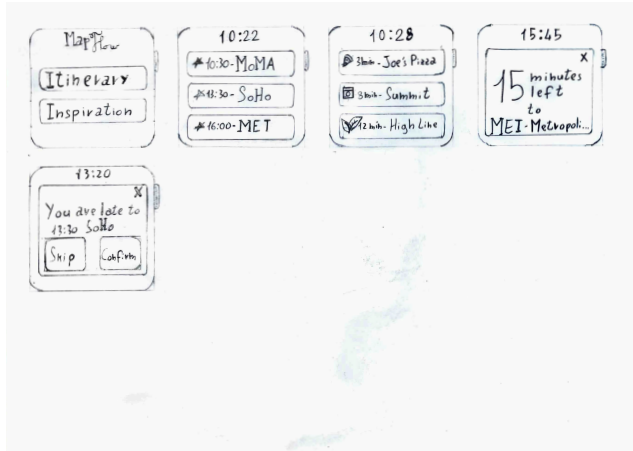 MapFlow
Itinerary
Inspiration
10:22
10:30-MoMA
13:30-SoHo
16:00-MET
10:28
3min-Joe's Pizza
3min-Summit
12min-High Line
15:45
X
15 minutes
left
to
MET-Metropoli...
13:20
X
You are late to
13:30 SoHo
Skip
Confirm